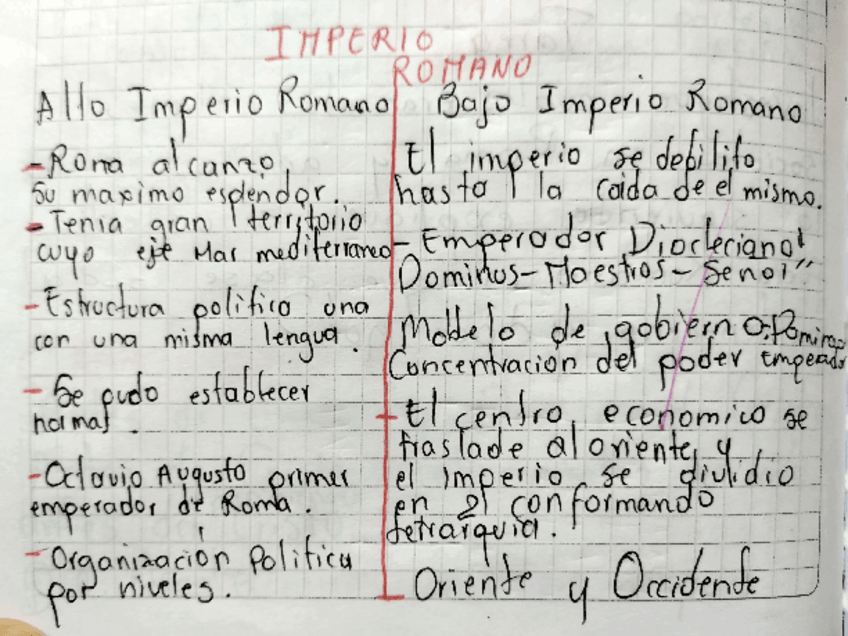 IMPERIO
ROMANO
Alto Imperio Romano
- Roma alcanzo
su maximo esplendor.
- Tenia gran territorio
cuyo eje Mar mediterraneo
- Estructura politica una
con una misma lengua.
- Se pudo establecer
normas.
- Octavio Augusto primer
emperador de Roma.
- Organizacion Politica
por niveles.
Bajo Imperio Romano
El imperio se debilito
hasta la caida de el mismo.
- Emperador Diocleciano "
Dominus - Maestros - Señor"
Modelo de gobierno:
Concentracion del poder Emperador
- El centro economico se
traslade al oriente y
el imperio se dividio
en 2 conformando
tetrarquia.
- Oriente y Occidente